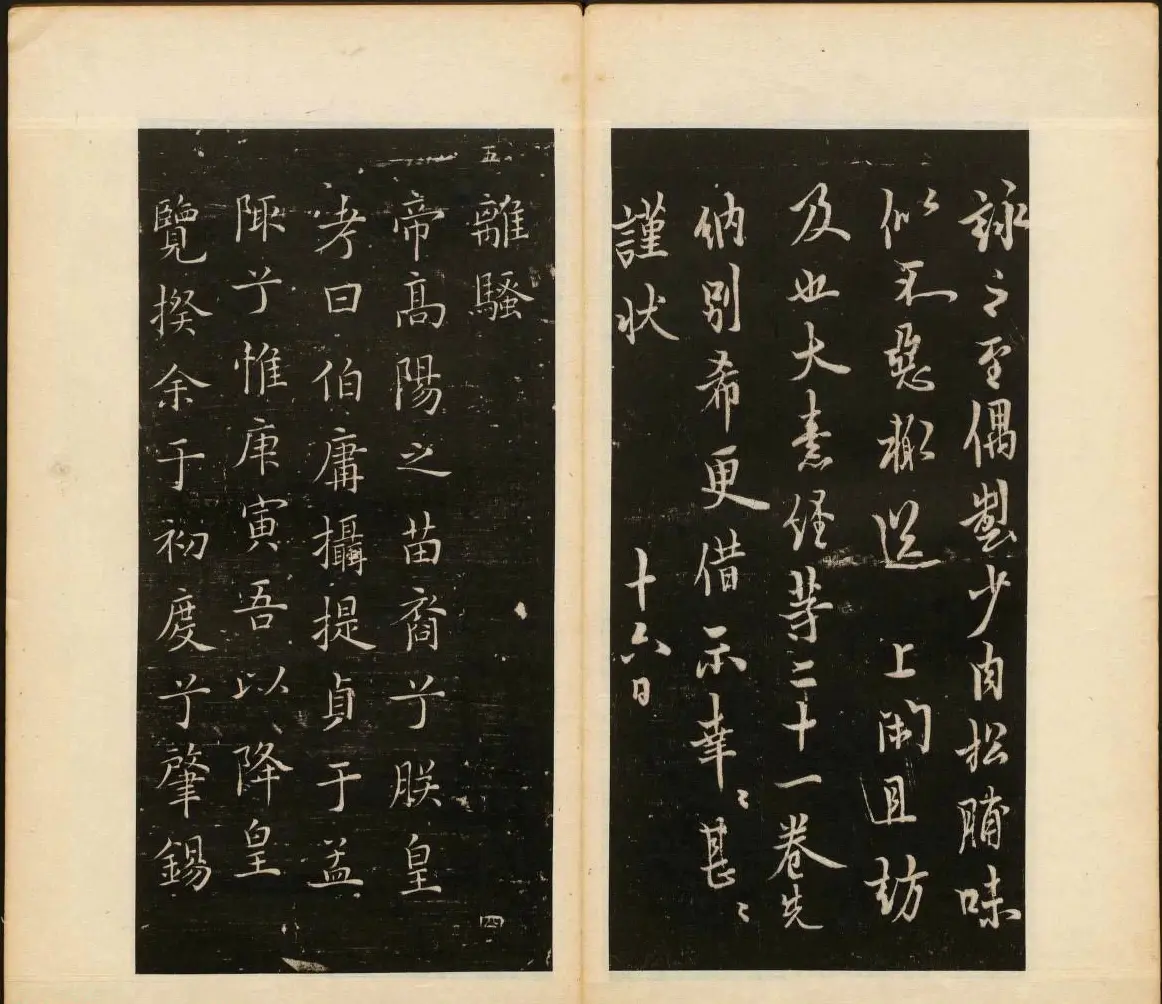 詠之至偶製少肉松脯味
似不惡輒送 上 且訪
及也大素経等二十一卷先
納別希更借示幸〻甚〻
謹状 十六日
五
離騷
帝高陽之苗裔兮朕皇
考曰伯庸攝提貞于孟
陬兮惟庚寅吾以降皇
覽揆余于初度兮肇錫
四